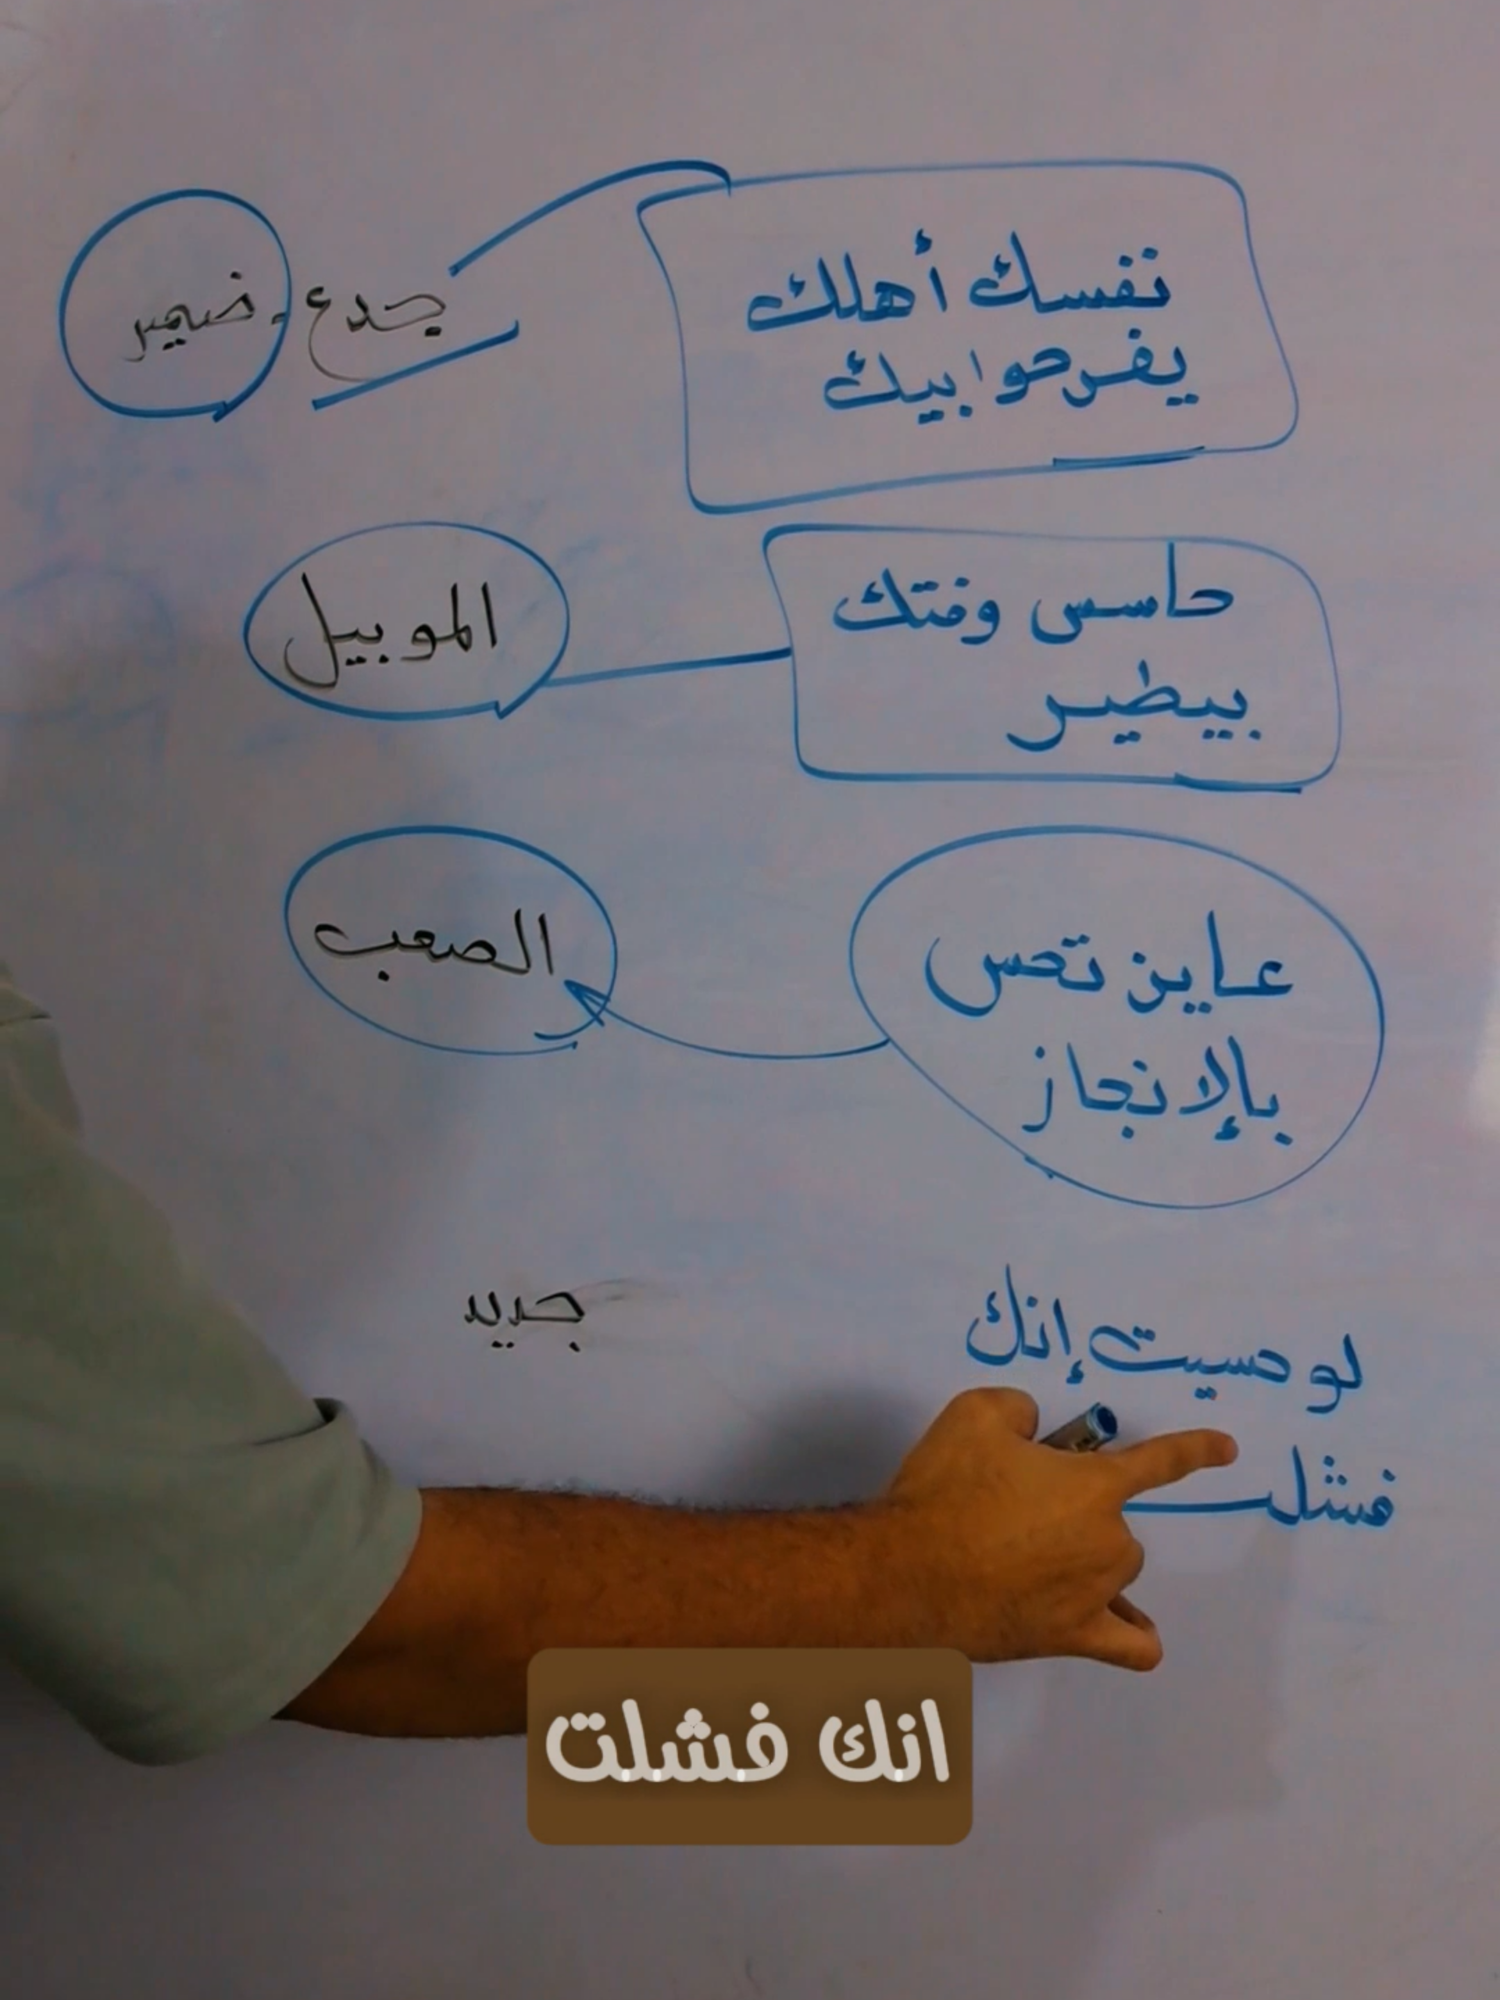 نفسك أهلك
يفرحوا بيك
جدع . ضمير
حاسس وقتك
بيطير
الموبيل
عاين تحس
بالإنجاز
الصعب
لو حسيت إنك
فشلت
جديد
انك فشلت